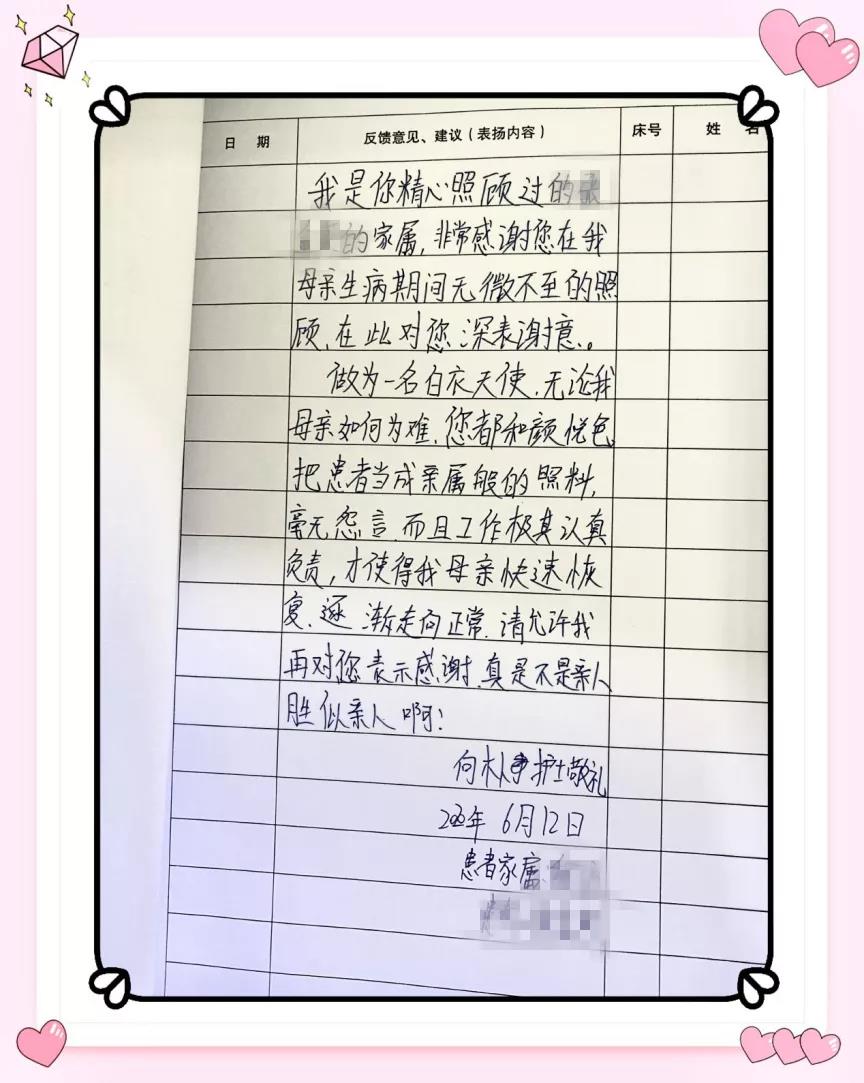 日 期 反馈意见、建议(表扬内容) 床号 姓 名
我是你精心照顾过的
的家属,非常感谢您在我
母亲生病期间无微不至的照
顾,在此对您深表谢意。
做为一名白衣天使,无论我
母亲如何为难,您都和颜悦色
把患者当成亲属般的照料,
毫无怨言,而且工作极其认真
负责,才使得我母亲快速恢
复,逐渐走向正常,请允许我
再对您表示感谢,真是不是亲人
胜似亲人啊!
向 护士敬礼
年6月12日
患者家属